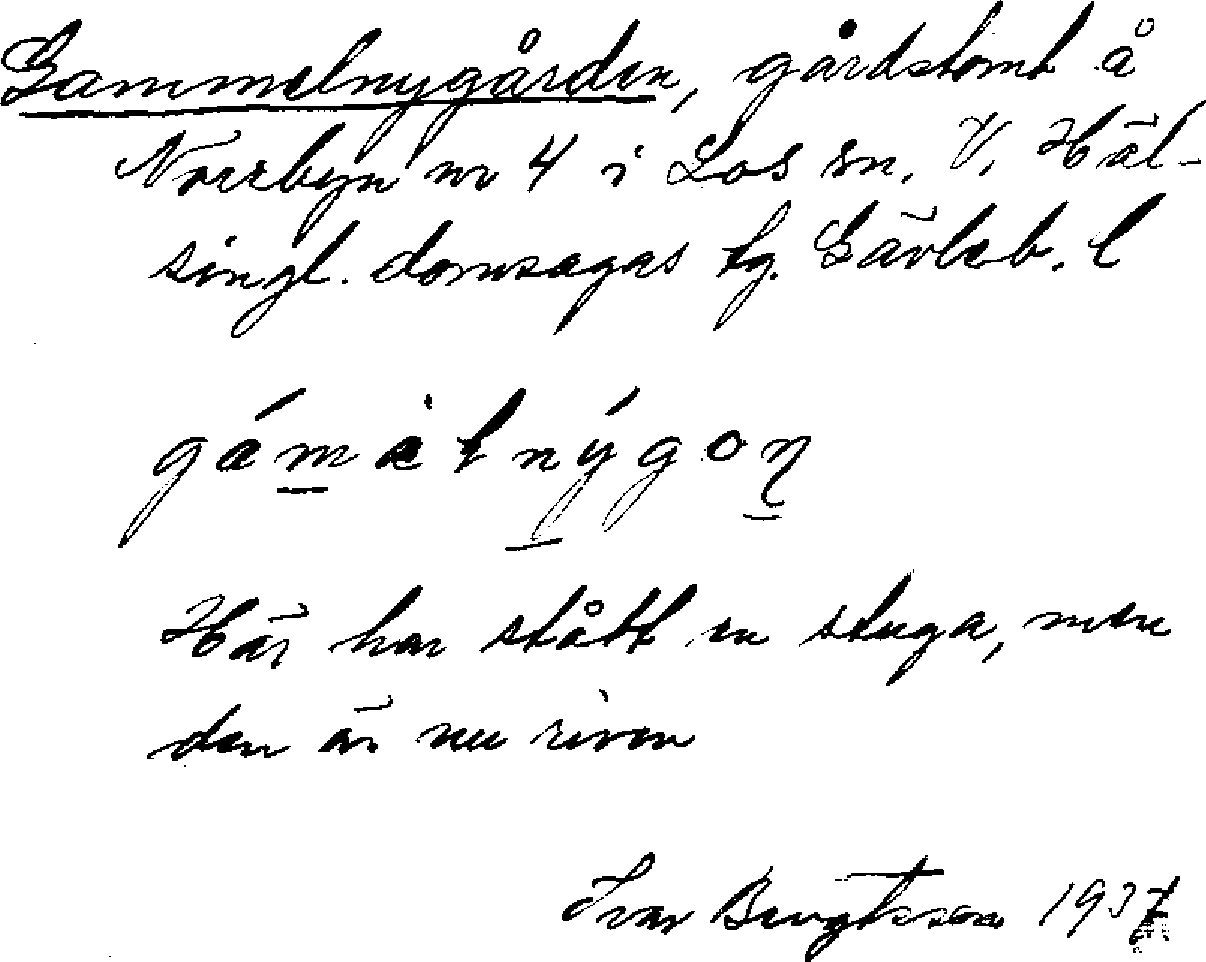 Gammelnygården, gårdstomt å
Norrbyn nr 4 i Los sn, V. Häl-
singl. domsagas tg. Gävleb. l
gámȧlnýgoŋ
Här har stått en stuga, men
den är nu riven
Ivar Bengtsson 1937